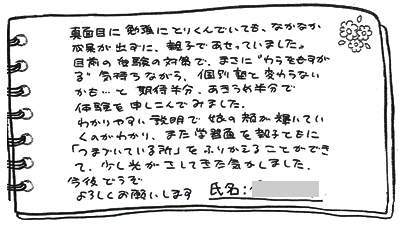 真面目に勉強にとりくんでいても、なかなか
成果が出ずに、親子であせっていました。
目前の受験の対策で、まさに"わらをもすが
る"気持ちながら、個別塾と変わらない
かも…と期待半分、あきらめ半分で
体験を申しこんでみました。
わかりやすい説明で娘の顔が輝いてい
くのがわかり、また学習面を親子ともに
「つまづいている所」をふりかえることができ
て、少し光がさしてきた気がしました。
今後どうぞ
よろしくお願いします 氏名: